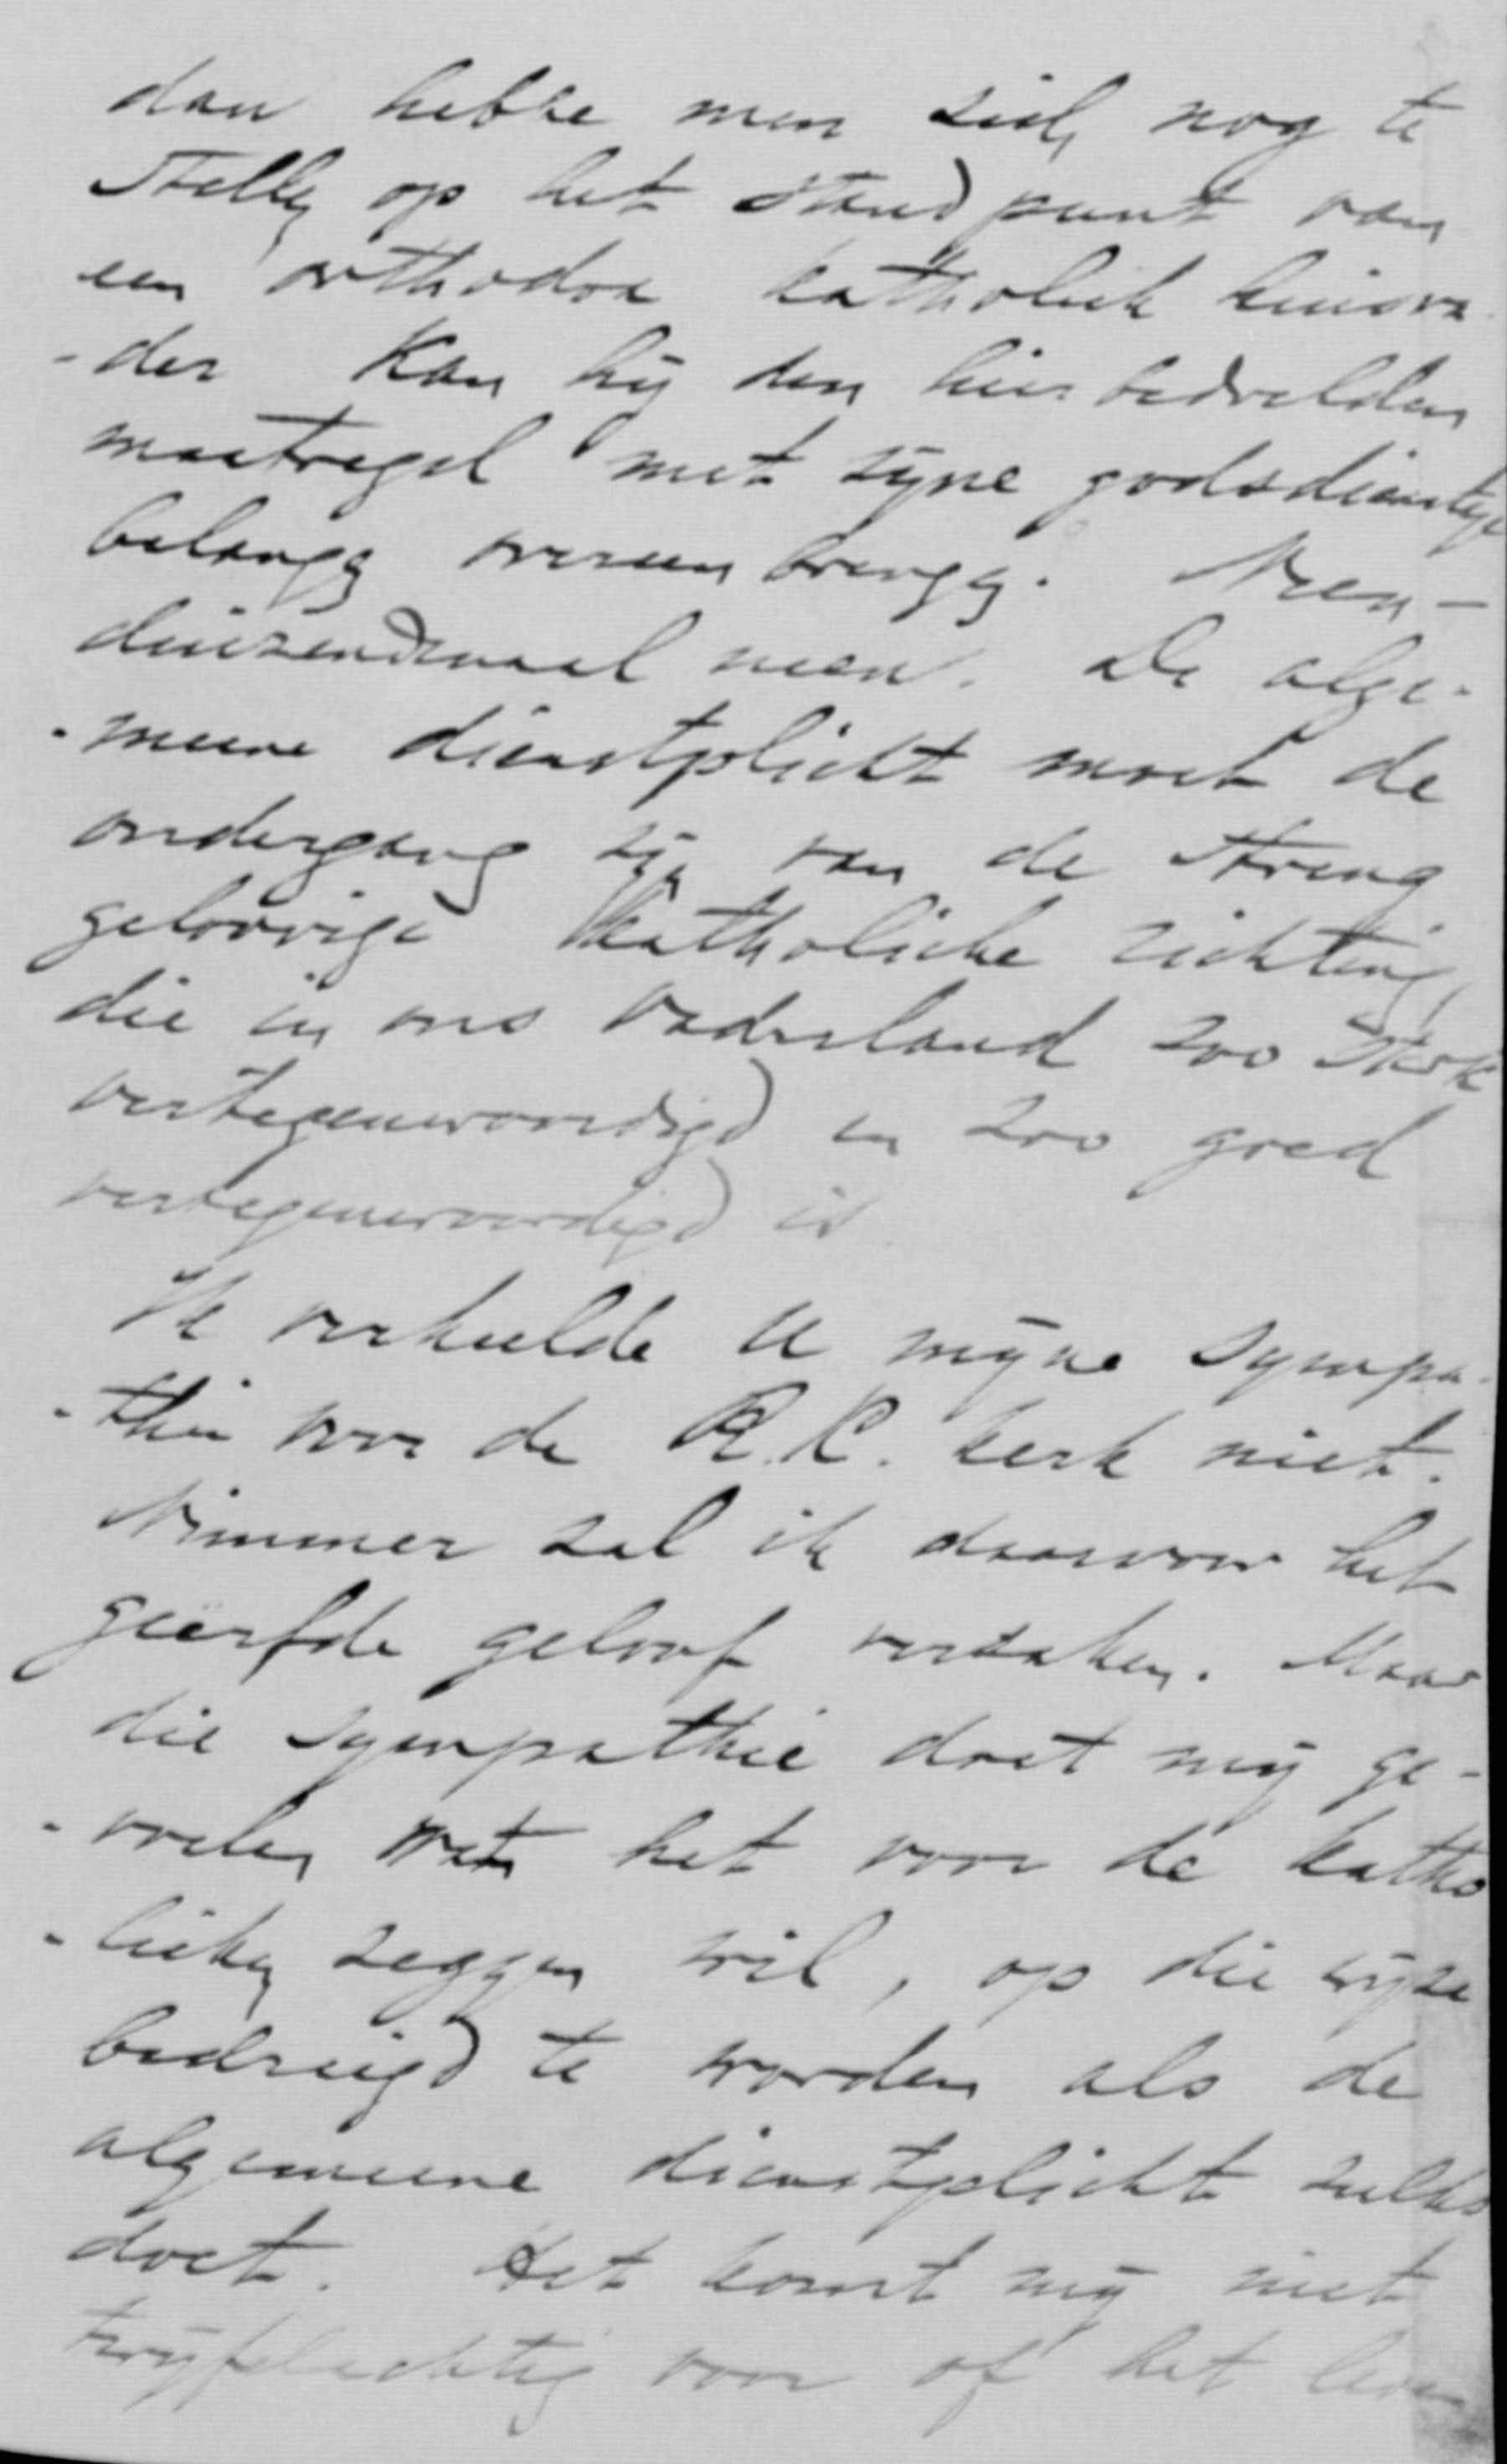 dan hebbe men zich nog te
stellen op het standpunt van
een orthodox katholiek huisva
-der Kan hij den hier bedoelden
maatregel met zijne godsdienstige
belangen overeenbrengen. Neen -
duizendmaal neen. De alge-
-meene dienstplicht moet de
ondergang zijn van de streng
geloovige katholieke richting,
die in ons vaderland zoo sterk
vertegenwoordigd en zoo goed
vertegenwoordigd is.
Ik verheelde U mijne sympa-
-thie voor de R.K. kerk niet.
Nimmer zal ik daarvoor het
geërfde geloof verzaken. Maar
die sympathie doet mij ge-
-voelen wat het voor de katho
-lieken zeggen wil, op die wijze
bedreigd te worden als de
algemeene dienstplicht zulks
doet. Het komt mij niet
twijfelachtig voor of het leven